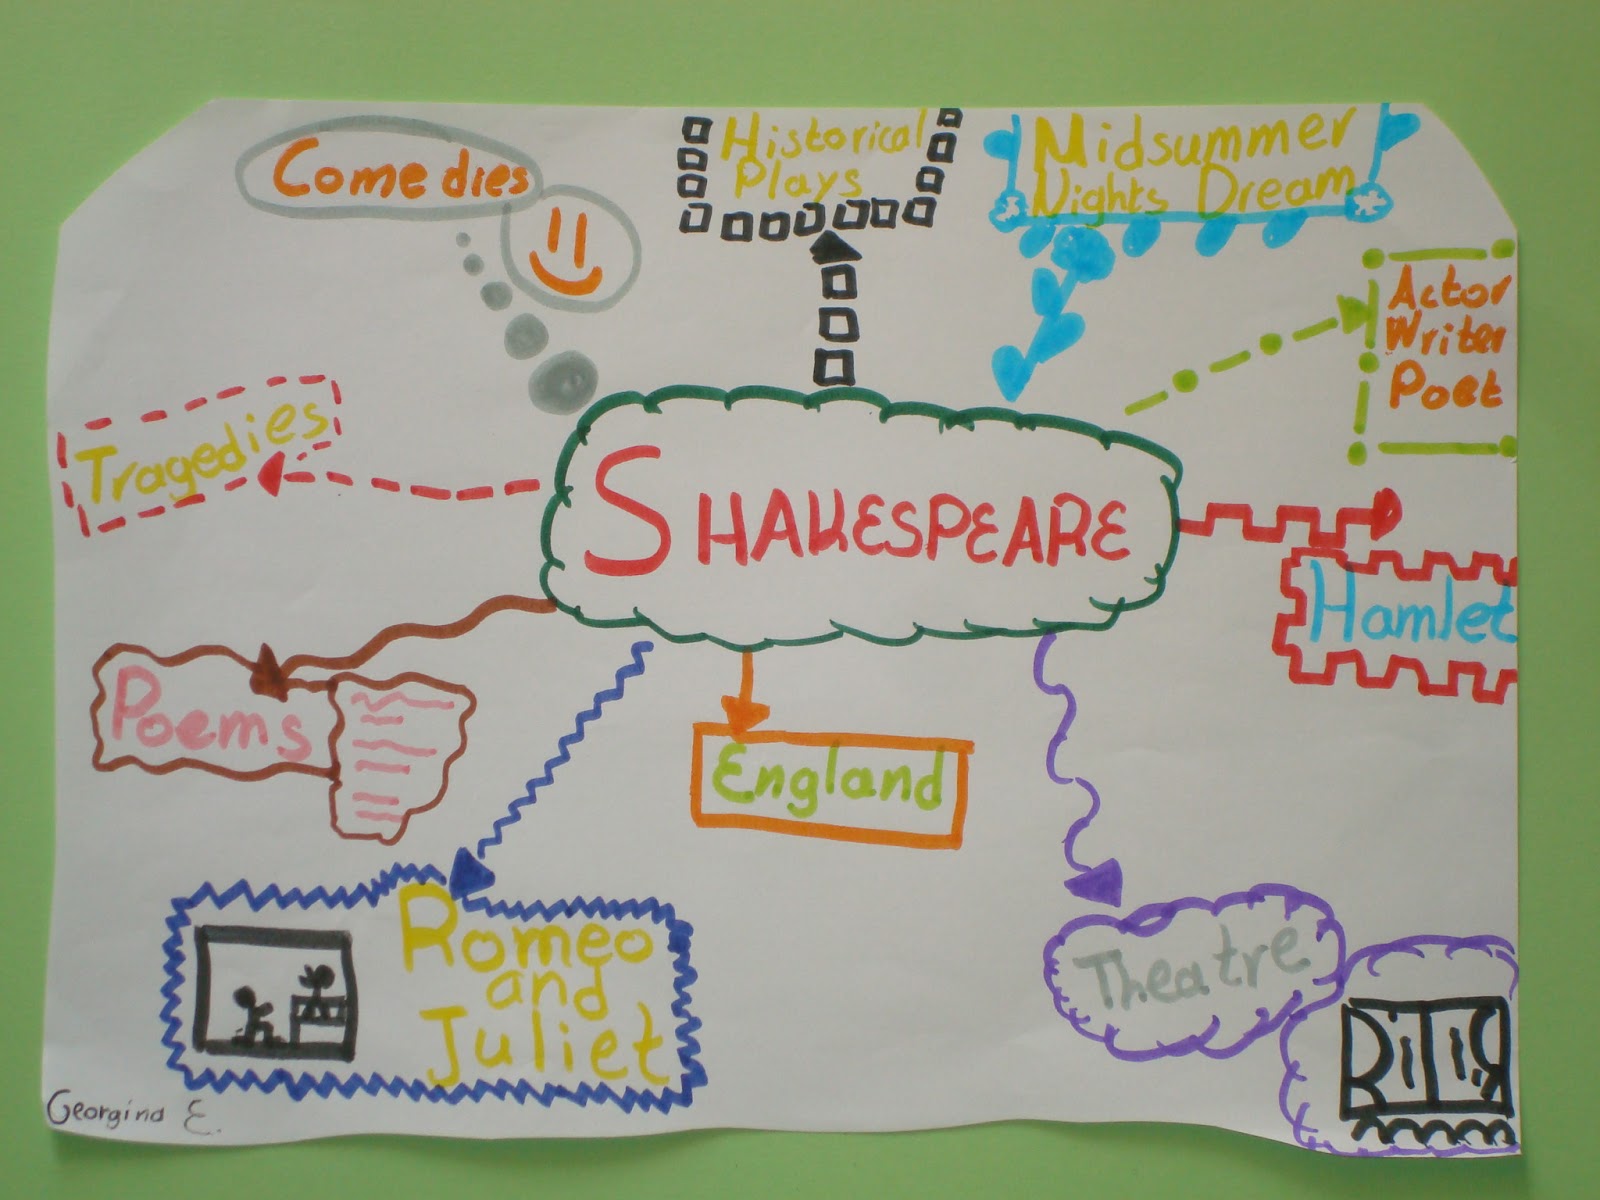 Comedies
Historical
Plays
Midsummer
Nights Dream
Actor
Writer
Poet
Tragedies
SHAKESPEARE
Hamlet
Poems
England
Romeo
and
Juliet
Theatre
Georgina E.